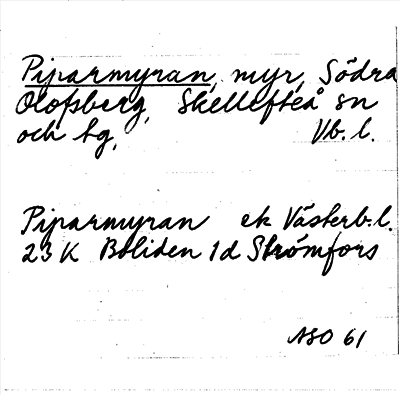 Piparmyran, myr, Södra
Olofsberg, Skellefteå sn
och tg, Vb. l.
Piparmyran ek Västerb. l.
23 K Boliden 1d Strömfors
ASO 61